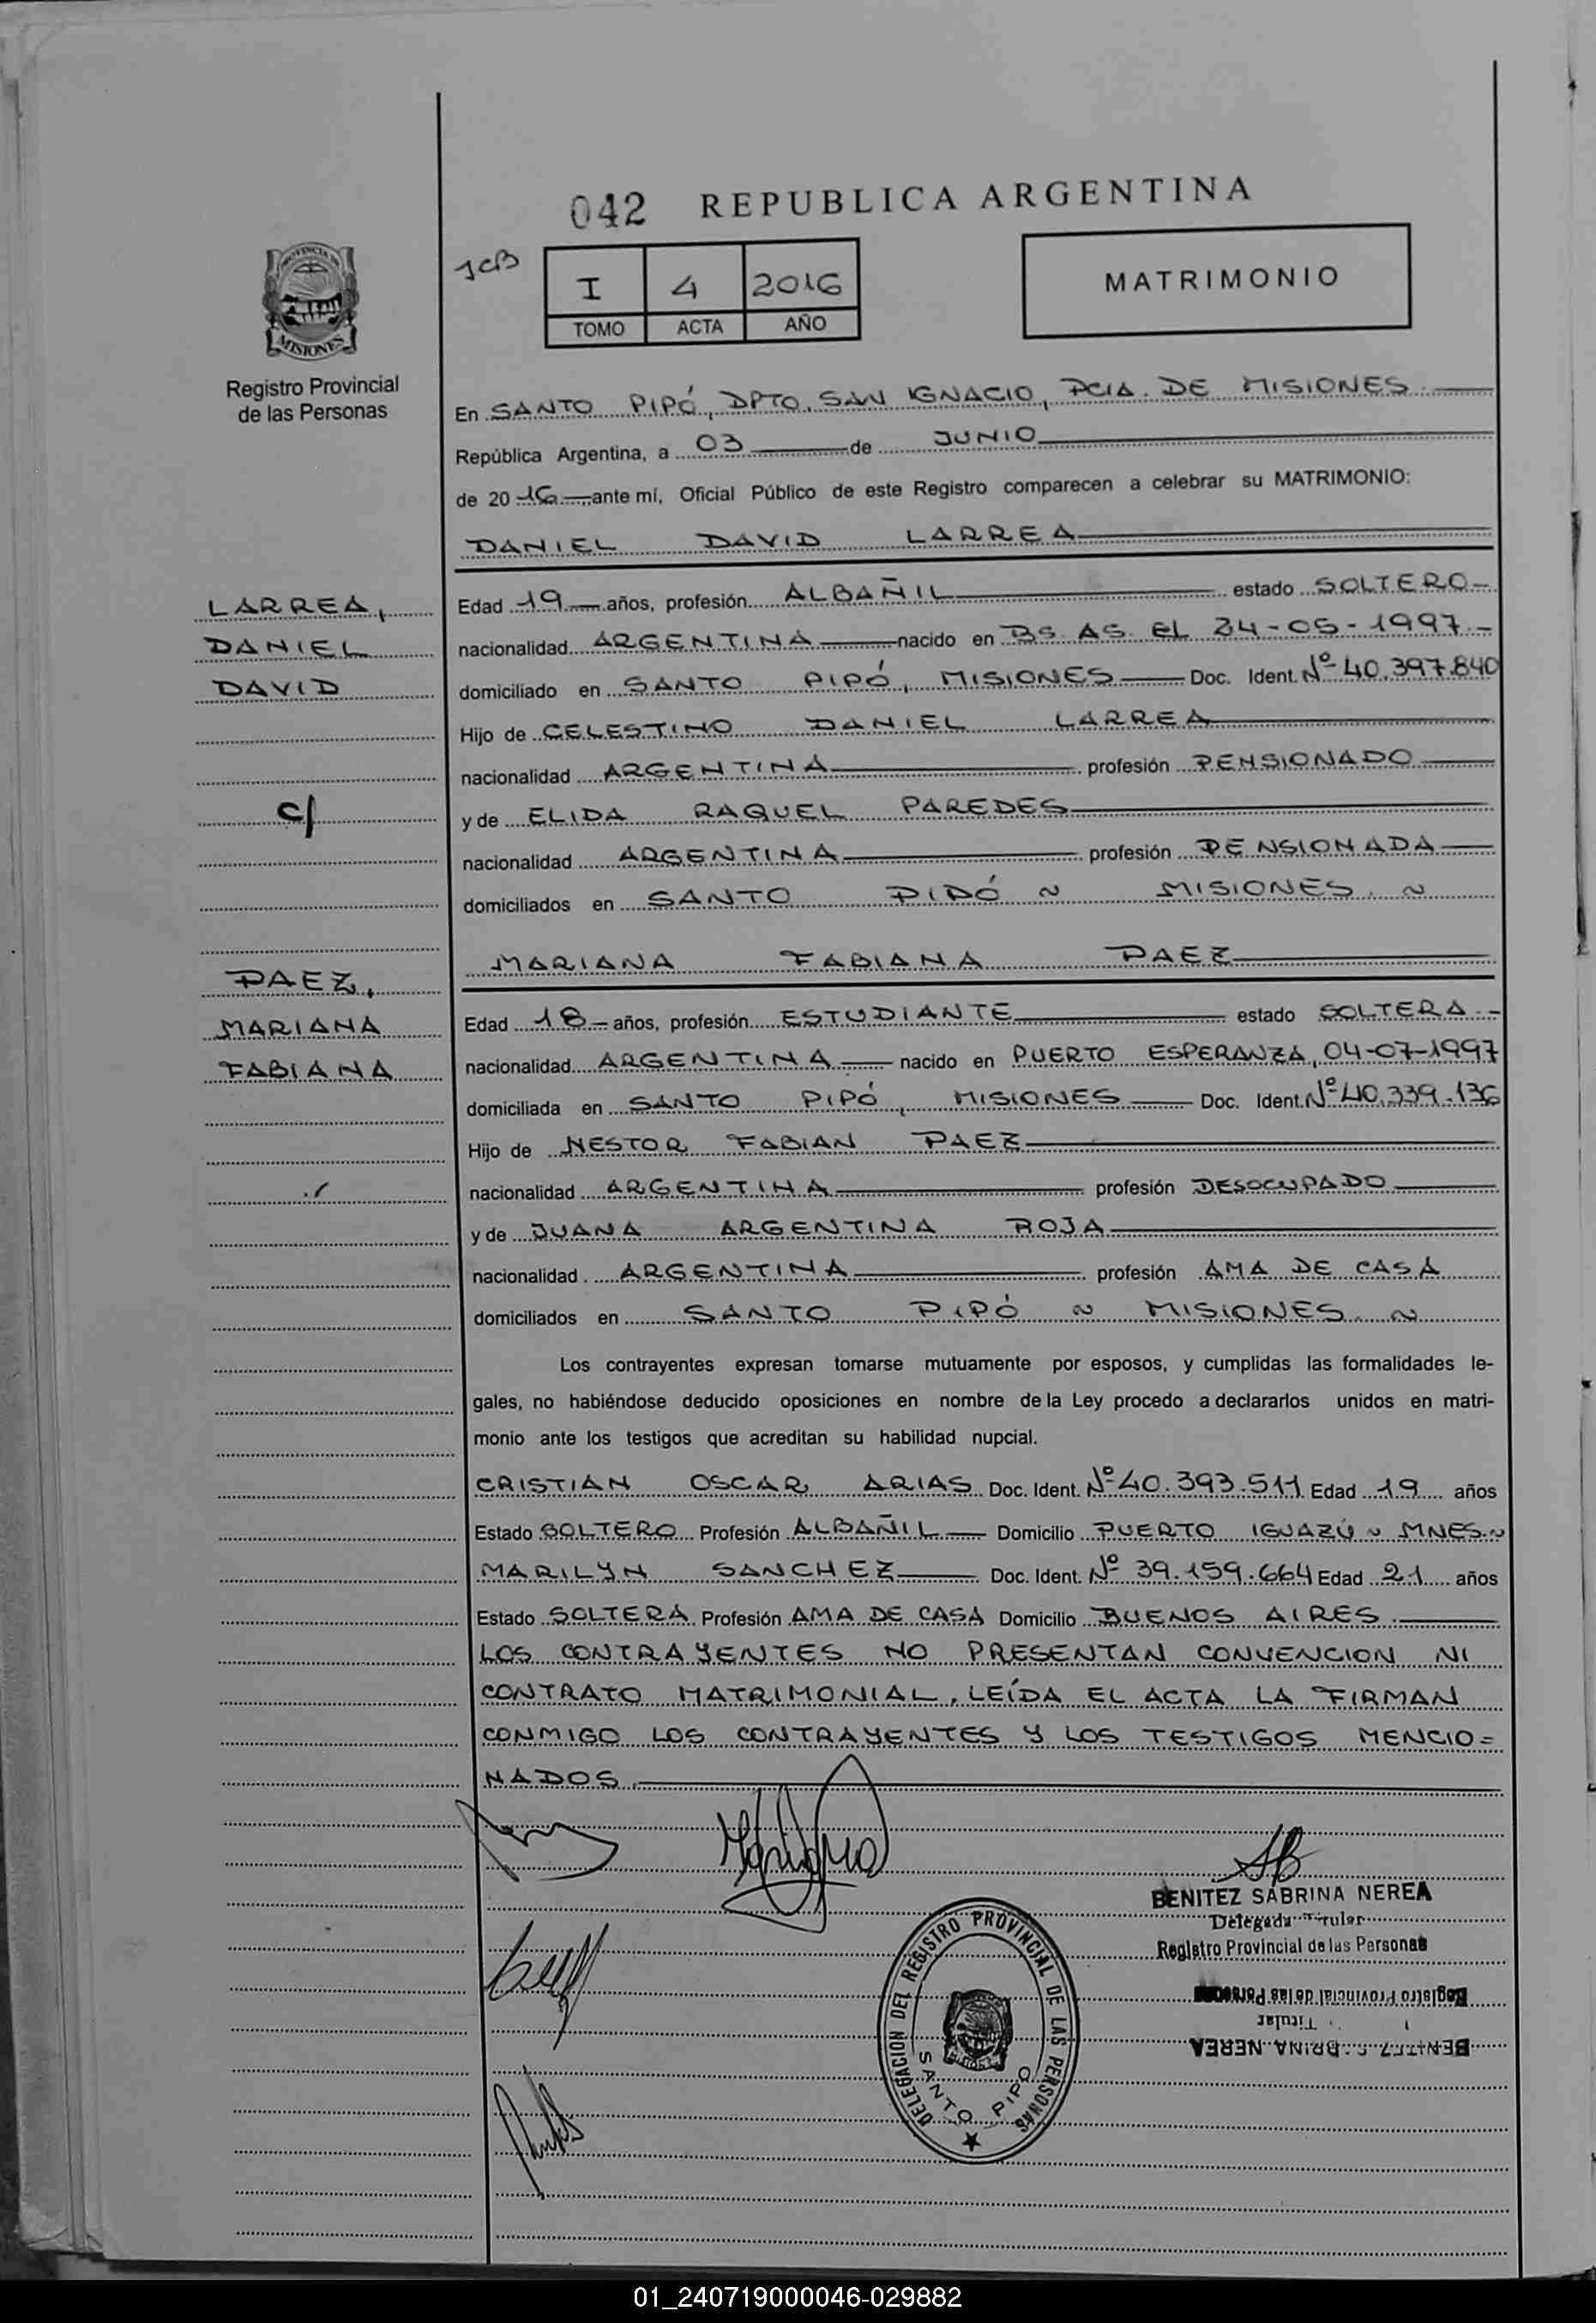 042 REPUBLICA ARGENTINA
JCB
I 4 2016
TOMO ACTA AÑO
MATRIMONIO
PROVINCIA DE
MISIONES
Registro Provincial
de las Personas
En SANTO PIPÓ, DPTO. SAN IGNACIO, PCIA. DE MISIONES.
República Argentina, a 03 de JUNIO
de 20 16 ante mí, Oficial Público de este Registro comparecen a celebrar su MATRIMONIO:
DANIEL DAVID LARREA
LARREA,
DANIEL
DAVID
Edad 19 años, profesión ALBAÑIL estado SOLTERO
nacionalidad ARGENTINA nacido en BS. AS. EL 24-05-1997.-
domiciliado en SANTO PIPÓ, MISIONES Doc. Ident. Nº 40.397.840
Hijo de CELESTINO DANIEL LARREA
nacionalidad ARGENTINA profesión PENSIONADO
c/
y de ELIDA RAQUEL PAREDES
nacionalidad ARGENTINA profesión PENSIONADA
domiciliados en SANTO PIPÓ ~ MISIONES. ~
PAEZ,
MARIANA
FABIANA
MARIANA FABIANA PAEZ
Edad 18 años, profesión ESTUDIANTE estado SOLTERA.-
nacionalidad ARGENTINA nacido en PUERTO ESPERANZA, 04-07-1997
domiciliada en SANTO PIPÓ, MISIONES Doc. Ident. Nº 40.339.136
Hijo de NESTOR FABIAN PAEZ
nacionalidad ARGENTINA profesión DESOCUPADO
y de JUANA ARGENTINA ROJA
nacionalidad ARGENTINA profesión AMA DE CASA
domiciliados en SANTO PIPÓ ~ MISIONES. ~
Los contrayentes expresan tomarse mutuamente por esposos, y cumplidas las formalidades le-
gales, no habiéndose deducido oposiciones en nombre de la Ley procedo a declararlos unidos en matri-
monio ante los testigos que acreditan su habilidad nupcial.
CRISTIAN OSCAR ARIAS Doc. Ident. Nº 40.393.511 Edad 19 años
Estado SOLTERO Profesión ALBAÑIL Domicilio PUERTO IGUAZÚ ~ MNES.~
MARILYN SANCHEZ Doc. Ident. Nº 39.159.664 Edad 21 años
Estado SOLTERA Profesión AMA DE CASA Domicilio BUENOS AIRES.
LOS CONTRAYENTES NO PRESENTAN CONVENCION NI
CONTRATO MATRIMONIAL. LEÍDA EL ACTA LA FIRMAN
CONMIGO LOS CONTRAYENTES Y LOS TESTIGOS MENCIO=
NADOS.
BENITEZ SABRINA NEREA
Delegada Titular
Registro Provincial de las Personas
DELEGACION DEL REGISTRO PROVINCIAL DE LAS PERSONAS
SANTO PIPO
Registro Provincial de las Personas
Titular
BENITEZ SABRINA NEREA
01_240719000046-029882